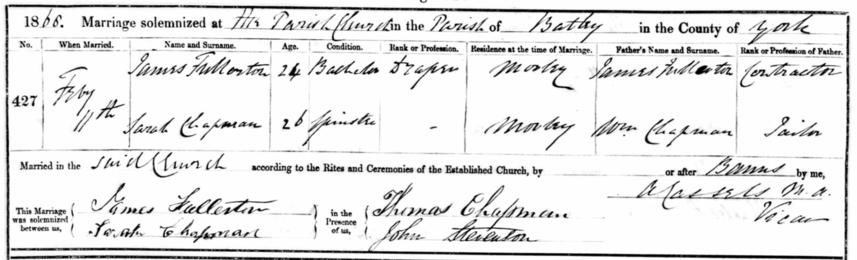 1866. Marriage solemnized at the Parish Church in the Parish of Batley in the County of York
No. When Married. Name and Surname. Age. Condition. Rank or Profession. Residence at the time of Marriage. Father's Name and Surname. Rank or Profession of Father.
427 Feby 11th James Fullerton 24 Bachelor Draper Morley James Fullerton Contractor
Sarah Chapman 26 Spinster - Morley Wm Chapman Tailor
Married in the said Church according to the Rites and Ceremonies of the Established Church, by or after Banns by me,
A Cassels M.A.
Vicar
This Marriage was solemnized between us, James Fullerton in the Presence of us, Thomas Chapman
Sarah Chapman John Steventon